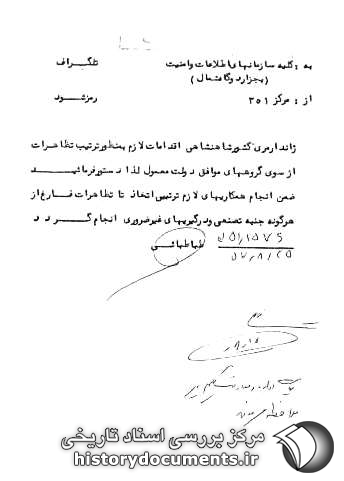 به : کلیه سازمانهای اطلاعات وامنیت تلگراف
( بجز اردوگا هشمال )
از : مرکز ۳۵۱ رمزشود
ژاندارمری کشورشاهنشاهی اقدامات لازم بمنظورترتیب تظاهرات
از سوی گروههای موافق دولت معمول لذا دستورفرمائید
ضمن انجام همکاریهای لازم ترتیبی اتخاذ تا تظاهرات فارغ از
هرگونه جنبه تصنعی ودرگیریهای غیرضروری انجام گردد
طباطبائی
مرکز بررسی اسناد تاریخی
historydocuments.ir